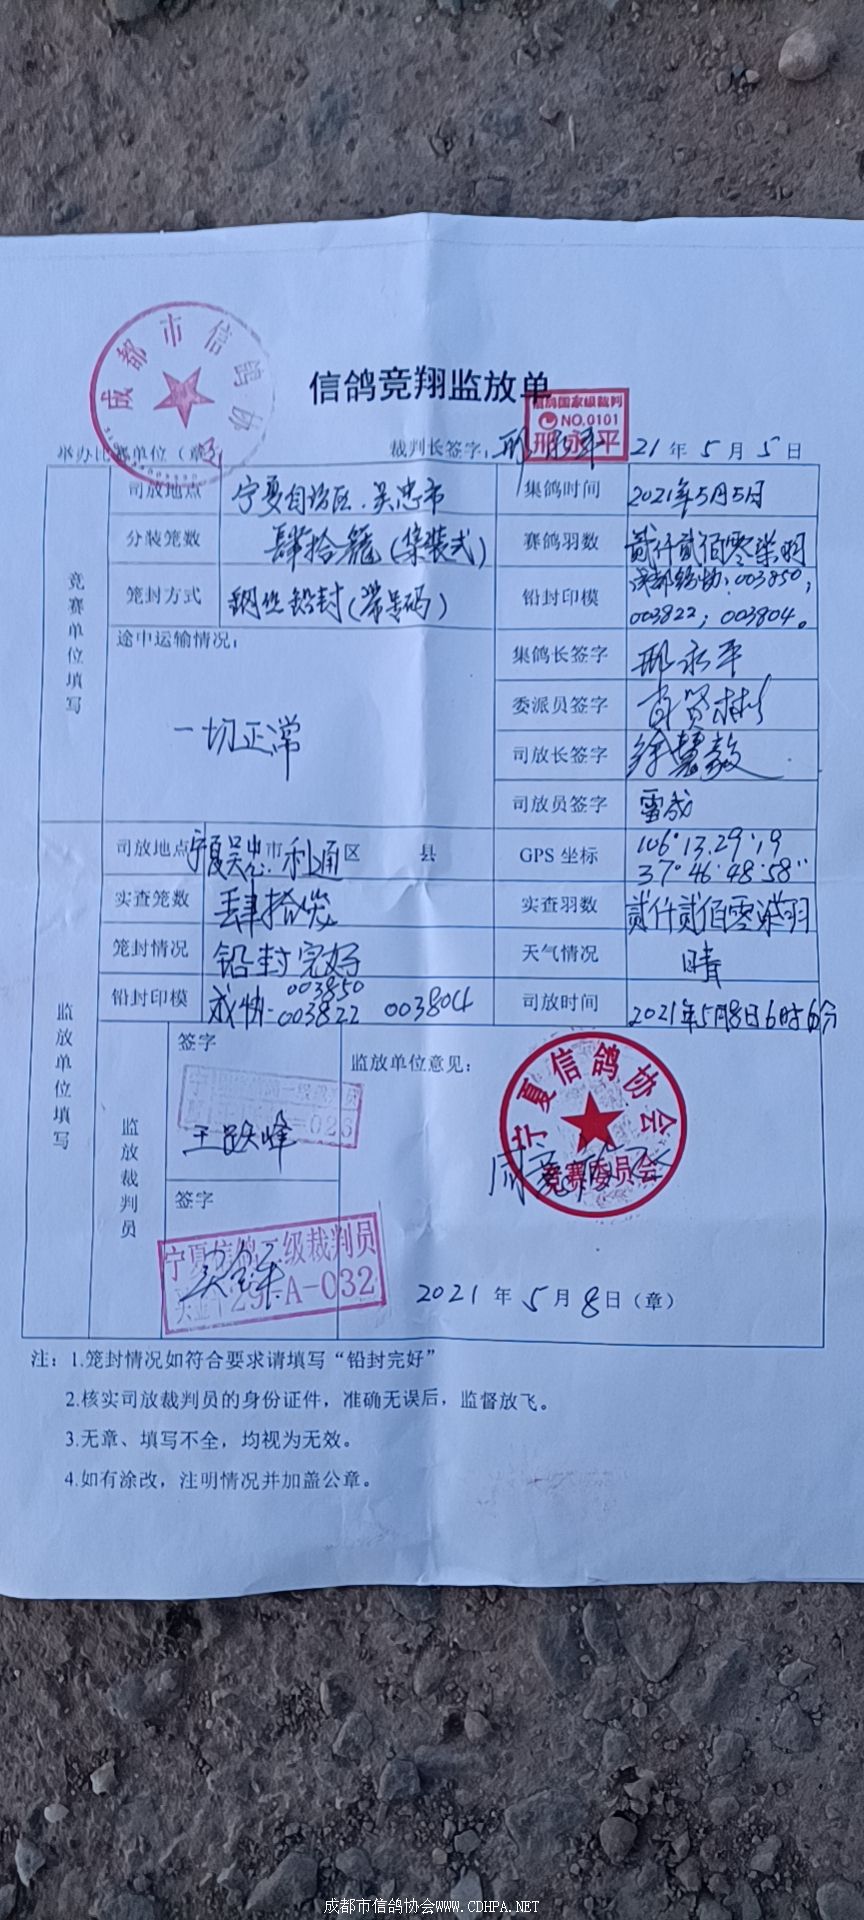 成都市信鸽协会
信鸽竞翔监放单
信鸽国家级裁判
NO.0101
邢永平
举办比赛单位（章
裁判长签字：邢永平 21年5月5日
竞赛单位填写
司放地点 宁夏自治区.吴忠市 集鸽时间 2021年5月5日
分装笼数 肆拾笼(集装式) 赛鸽羽数 贰仟贰佰零柒羽
笼封方式 钢丝铅封(带号码) 铅封印模 成都鸽协:003850;
003822;003804。
途中运输情况：
一切正常
集鸽长签字 邢永平
委派员签字 肖贤彬
司放长签字
司放员签字 雷成
监放单位填写
司放地点 宁夏吴忠市利通区 县 GPS 坐标 106°13.29'19
37°46'48'58"
实查笼数 肆拾 实查羽数 贰仟贰佰零柒羽
笼封情况 铅封完好 天气情况 晴
铅封印模 成协-003850
003822 003804 司放时间 2021年5月8日6时6分
监放裁判员
签字
王跃峰
签字
宁夏信鸽二级裁判员
A-032
监放单位意见：
宁夏信鸽协会
竞赛委员会
2021年5月8日（章）
注：1.笼封情况如符合要求请填写“铅封完好”
2.核实司放裁判员的身份证件，准确无误后，监督放飞。
3.无章、填写不全，均视为无效。
4.如有涂改，注明情况并加盖公章。
成都市信鸽协会www.CDHPA.NET